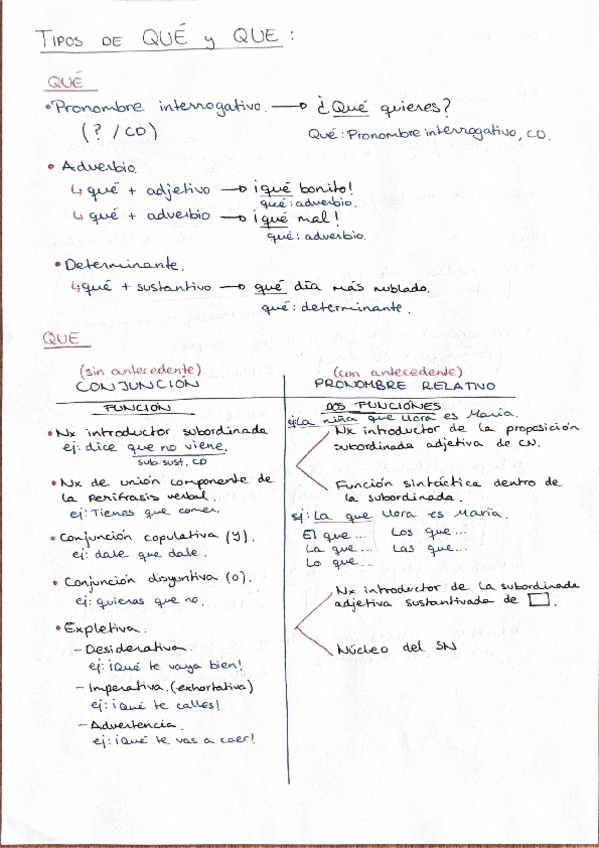 TIPOS DE QUÉ y QUE:
QUÉ
• Pronombre interrogativo. → ¿Qué quieres?
(? / CD)
Qué: Pronombre interrogativo, CD.
• Adverbio.
↳ qué + adjetivo → ¡qué bonito!
qué: adverbio.
↳ qué + adverbio → ¡qué mal!
qué: adverbio.
• Determinante.
↳ qué + sustantivo → qué día más nublado.
qué: determinante.
QUE
(sin antecedente)
CONJUNCIÓN
FUNCIÓN
• Nx introductor subordinada
ej: dice que no viene.
sub. sust, CD
• Nx de unión componente de
la perífrasis verbal.
ej: Tienes que comer.
• Conjunción copulativa (y).
ej: dale que dale.
• Conjunción disyuntiva (o).
ej: quieras que no.
• Expletiva.
- Desiderativa.
ej: ¡Qué te vaya bien!
- Imperativa. (exhortativa)
ej: ¡Qué te calles!
- Advertencia.
ej: ¡Qué te vas a caer!
(con antecedente)
PRONOMBRE RELATIVO
DOS FUNCIONES
ej: La niña que llora es María.
Nx introductor de la proposición
subordinada adjetiva de CN.
Función sintáctica dentro de
la subordinada.
ej: La que llora es María.
El que... Los que...
La que... Las que...
Lo que...
Nx introductor de la subordinada
adjetiva sustantivada de □.
Núcleo del SN